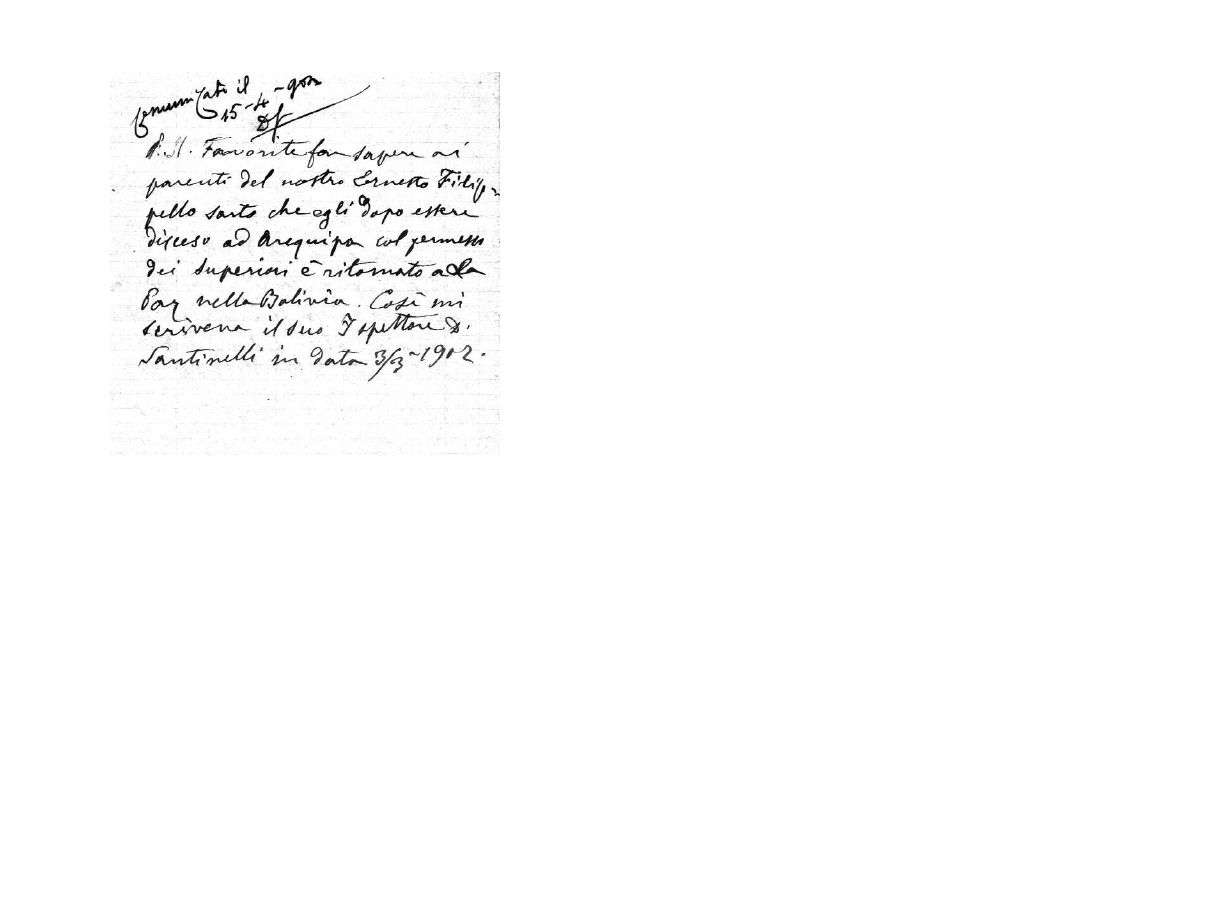 Comunicato il
15-4-902
P.S. Favorite far sapere ai
parenti del nostro Ernesto Filip-
pello sarto che egli dopo essere
disceso ad Arequipa col permesso
dei Superiori è ritornato a La
Paz nella Bolivia. Così mi
scriveva il suo Ispettore D.
Santinelli in data 3/3-1902.